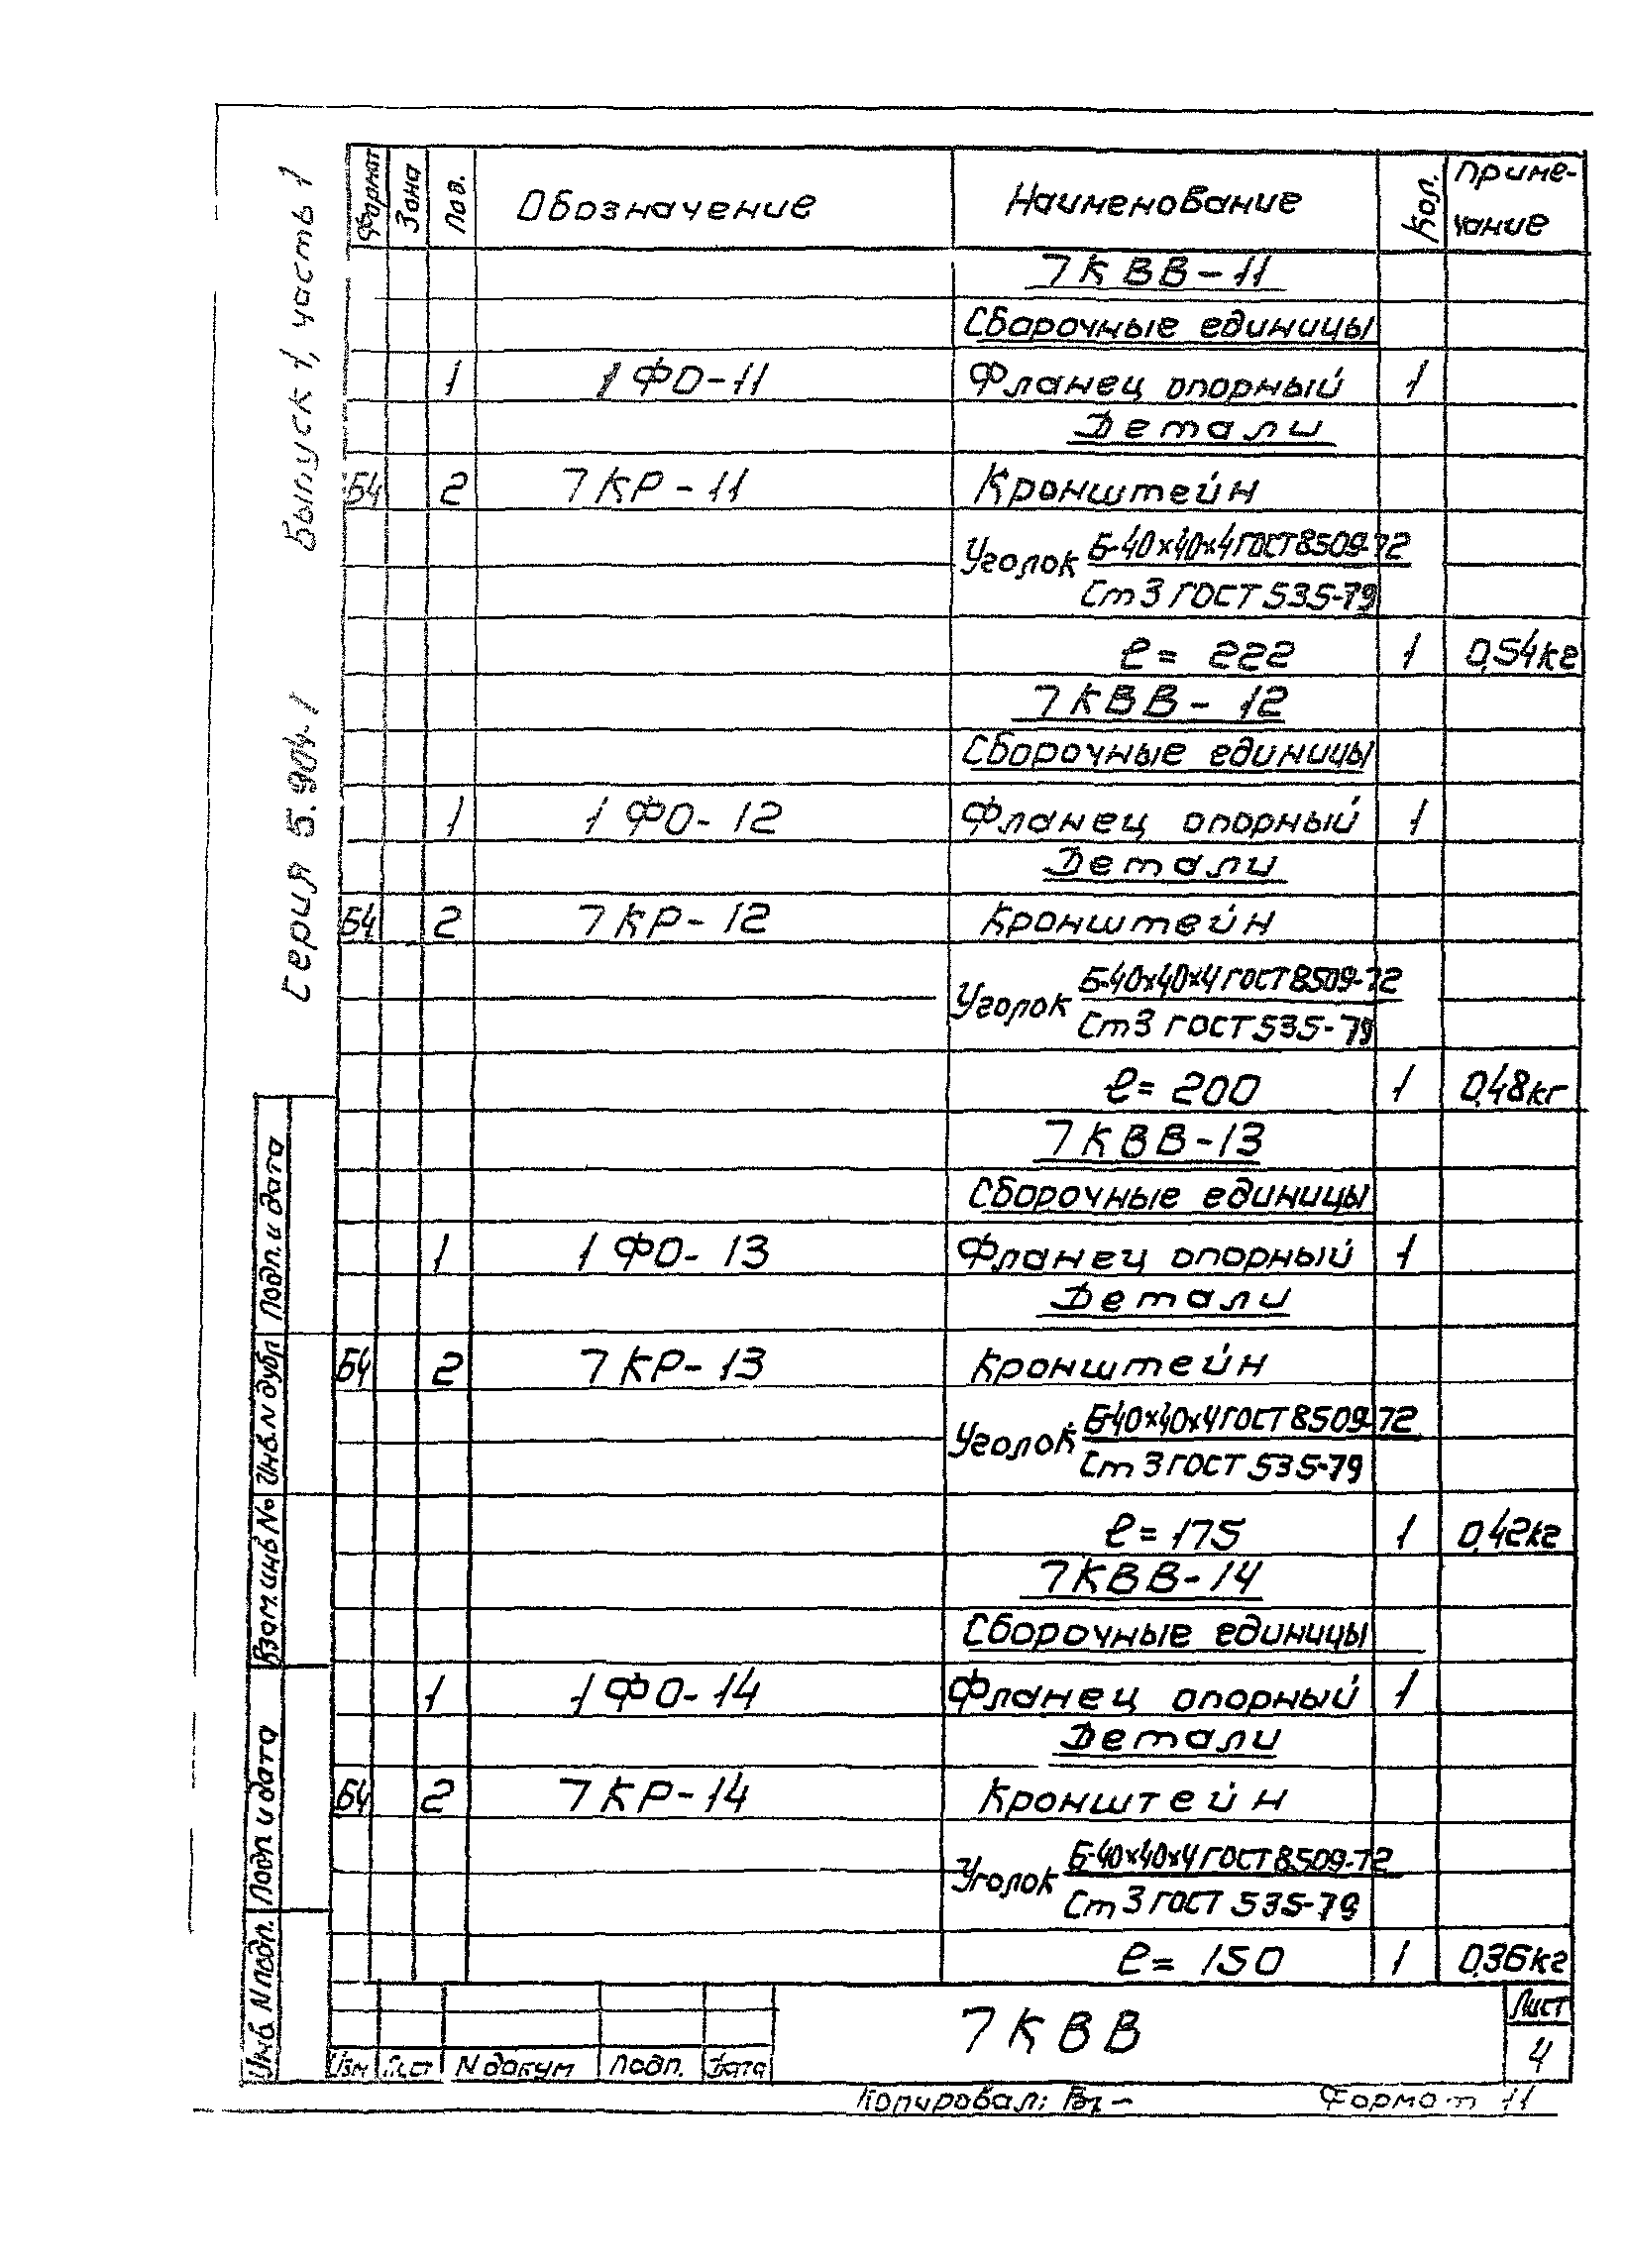 Серия 5.904-1 Выпуск 1, часть 1
Формат Зона Поз. Обозначение Наименование Кол. Приме-
чание
7КВВ-11
Сборочные единицы
1 1ФО-11 Фланец опорный 1
Детали
Б4 2 7КР-11 Кронштейн
Уголок Б-40х40х4 ГОСТ 8509-72
Ст3 ГОСТ 535-79
ℓ= 222 1 0,54кг
7КВВ-12
Сборочные единицы
1 1ФО-12 Фланец опорный 1
Детали
Б4 2 7КР-12 Кронштейн
Уголок Б-40х40х4 ГОСТ 8509-72
Ст3 ГОСТ 535-79
ℓ= 200 1 0,48кг
7КВВ-13
Сборочные единицы
1 1ФО-13 Фланец опорный 1
Детали
Б4 2 7КР-13 Кронштейн
Уголок Б-40х40х4 ГОСТ 8509-72
Ст3 ГОСТ 535-79
ℓ=175 1 0,42кг
7КВВ-14
Сборочные единицы
1 1ФО-14 Фланец опорный 1
Детали
Б4 2 7КР-14 Кронштейн
Уголок Б-40х40х4 ГОСТ 8509-72
Ст3 ГОСТ 535-79
ℓ= 150 1 0,36кг
Инв. N подп. Подп и дата Взам. инв № Инв. N дубл Подп. и дата
7КВВ
Лист
4
Изм Лист N докум Подп. Дата
Копировал: Формат 11